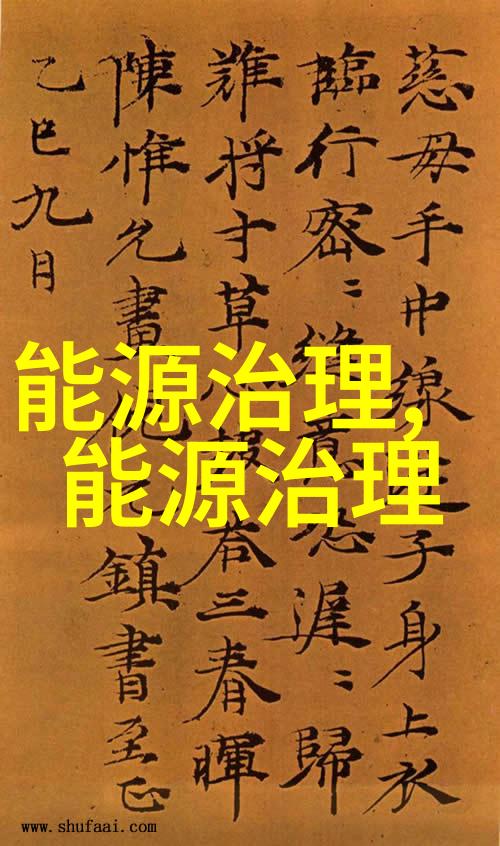 慈母手中線遊子身上衣
臨行密〻縫意恐遲〻歸
難将寸草心報答三春暉
陳惟允畫倪元鎮書至正
乙巳九月
能源治理,
能源治理
www.shufaai.com